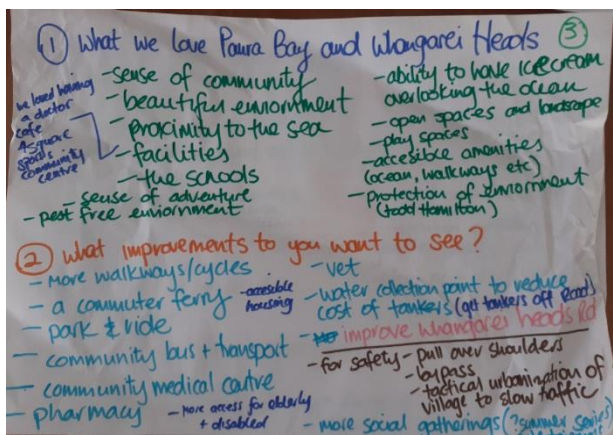 ① What we love Paura Bay and Whangarei Heads ③
we loved having
a doctor
cafe
4square
sports
community
centre
- sense of community
- beautiful enviornment
- proximity to the sea
- facilities
- the schools
- sense of adventure
- pest free enviornment
- ability to have Icecream
overlooking the ocean
- open spaces and landscape
- play spaces
- accesible amenities
(ocean, walkways etc)
- protection of enviornment
(todd Hamilton)
② What improvements to you want to see?
- More walkways/cycles
- a commuter ferry
- accesible
housing
- park & ride
- community bus + transport
- community medical centre
- pharmacy
- More access for elderly
+ disabled
- vet
- water collection point to reduce
cost of tankers (get tankers off Road)
- improve whangarei heads Rd
- for safety - pull over shoulders
- bypass
- tactical urbanization of
village to slow traffic
- more social gatherings (?summer series)